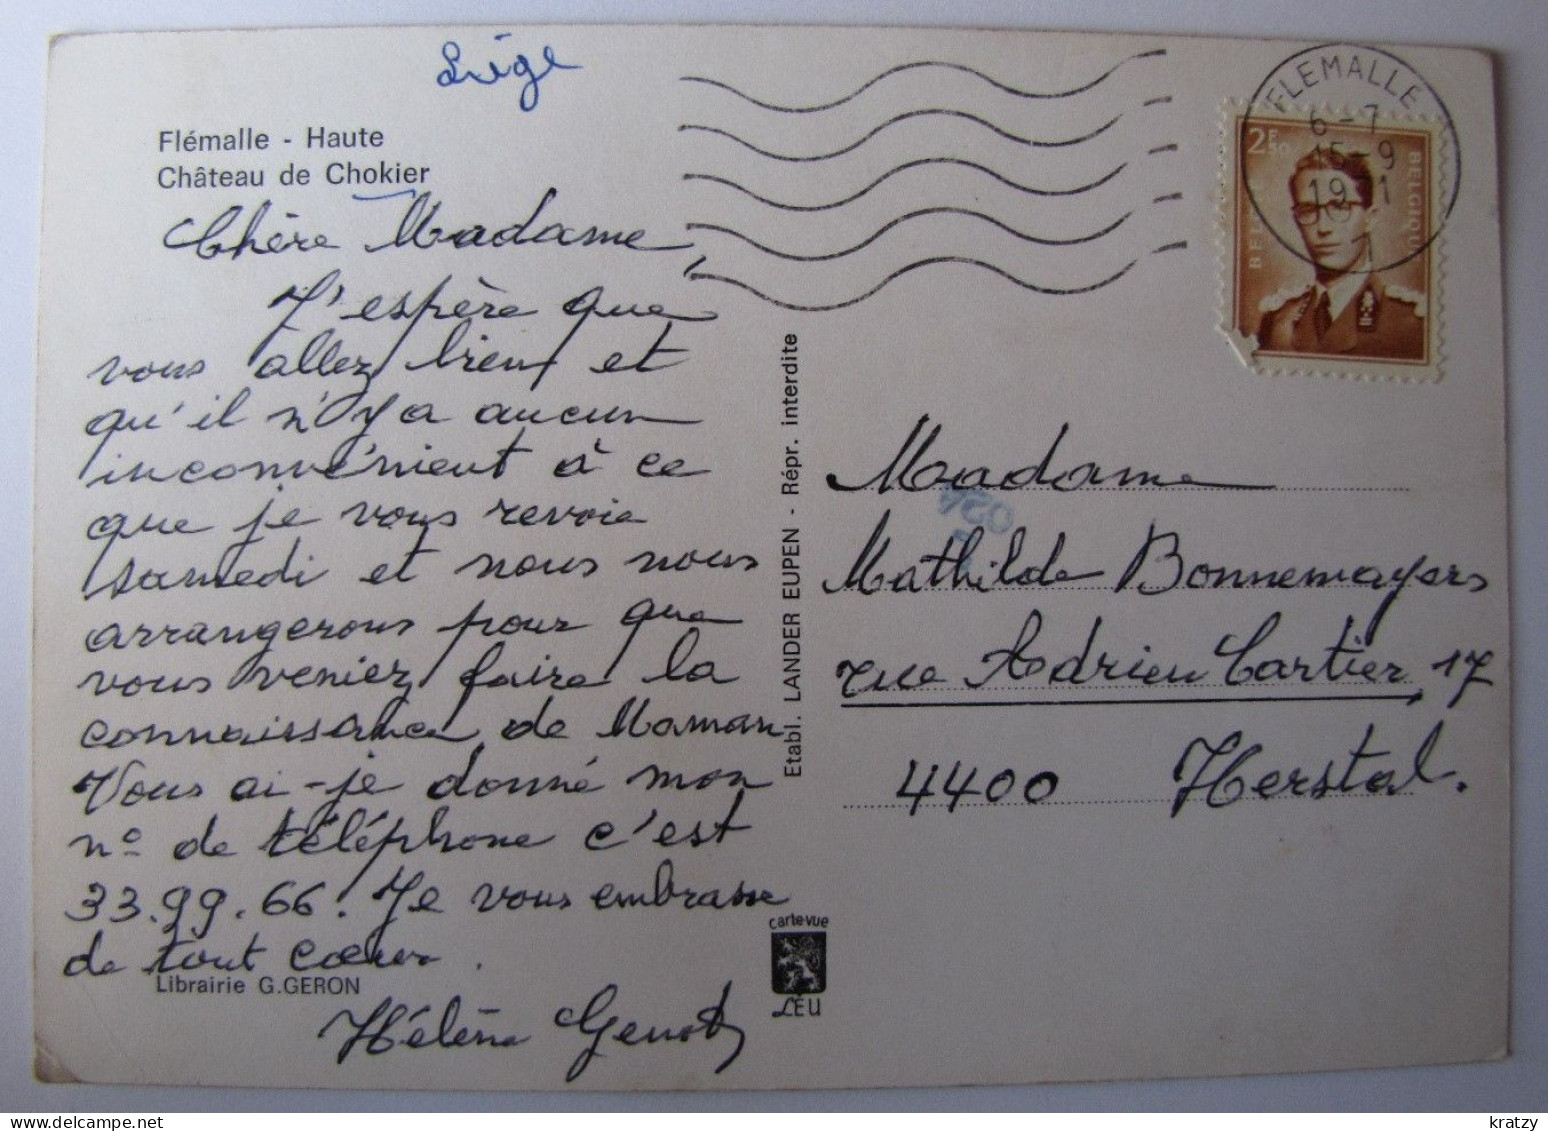 Liège
Flémalle - Haute
Château de Chokier
Chère Madame,
J'espère que
vous allez bien et
qu'il n'y a aucun
inconvénient à ce
que je vous revoie
samedi et nous nous
arrangerons pour que
vous veniez faire la
connaissance de Maman
Vous ai-je donné mon
n° de téléphone c'est
33.99.66. Je vous embrasse
de tout cœur.
Librairie G.GERON
Hélène Genot
Etabl. LANDER EUPEN - Répr. interdite
carte-vue
LEU
FLEMALLE
6-7
15-9
1
2F50
BELGIQUE
Madame
Mathilde Bonnemayers
rue Adrien Cartier, 17
4400 Herstal.
kratzy